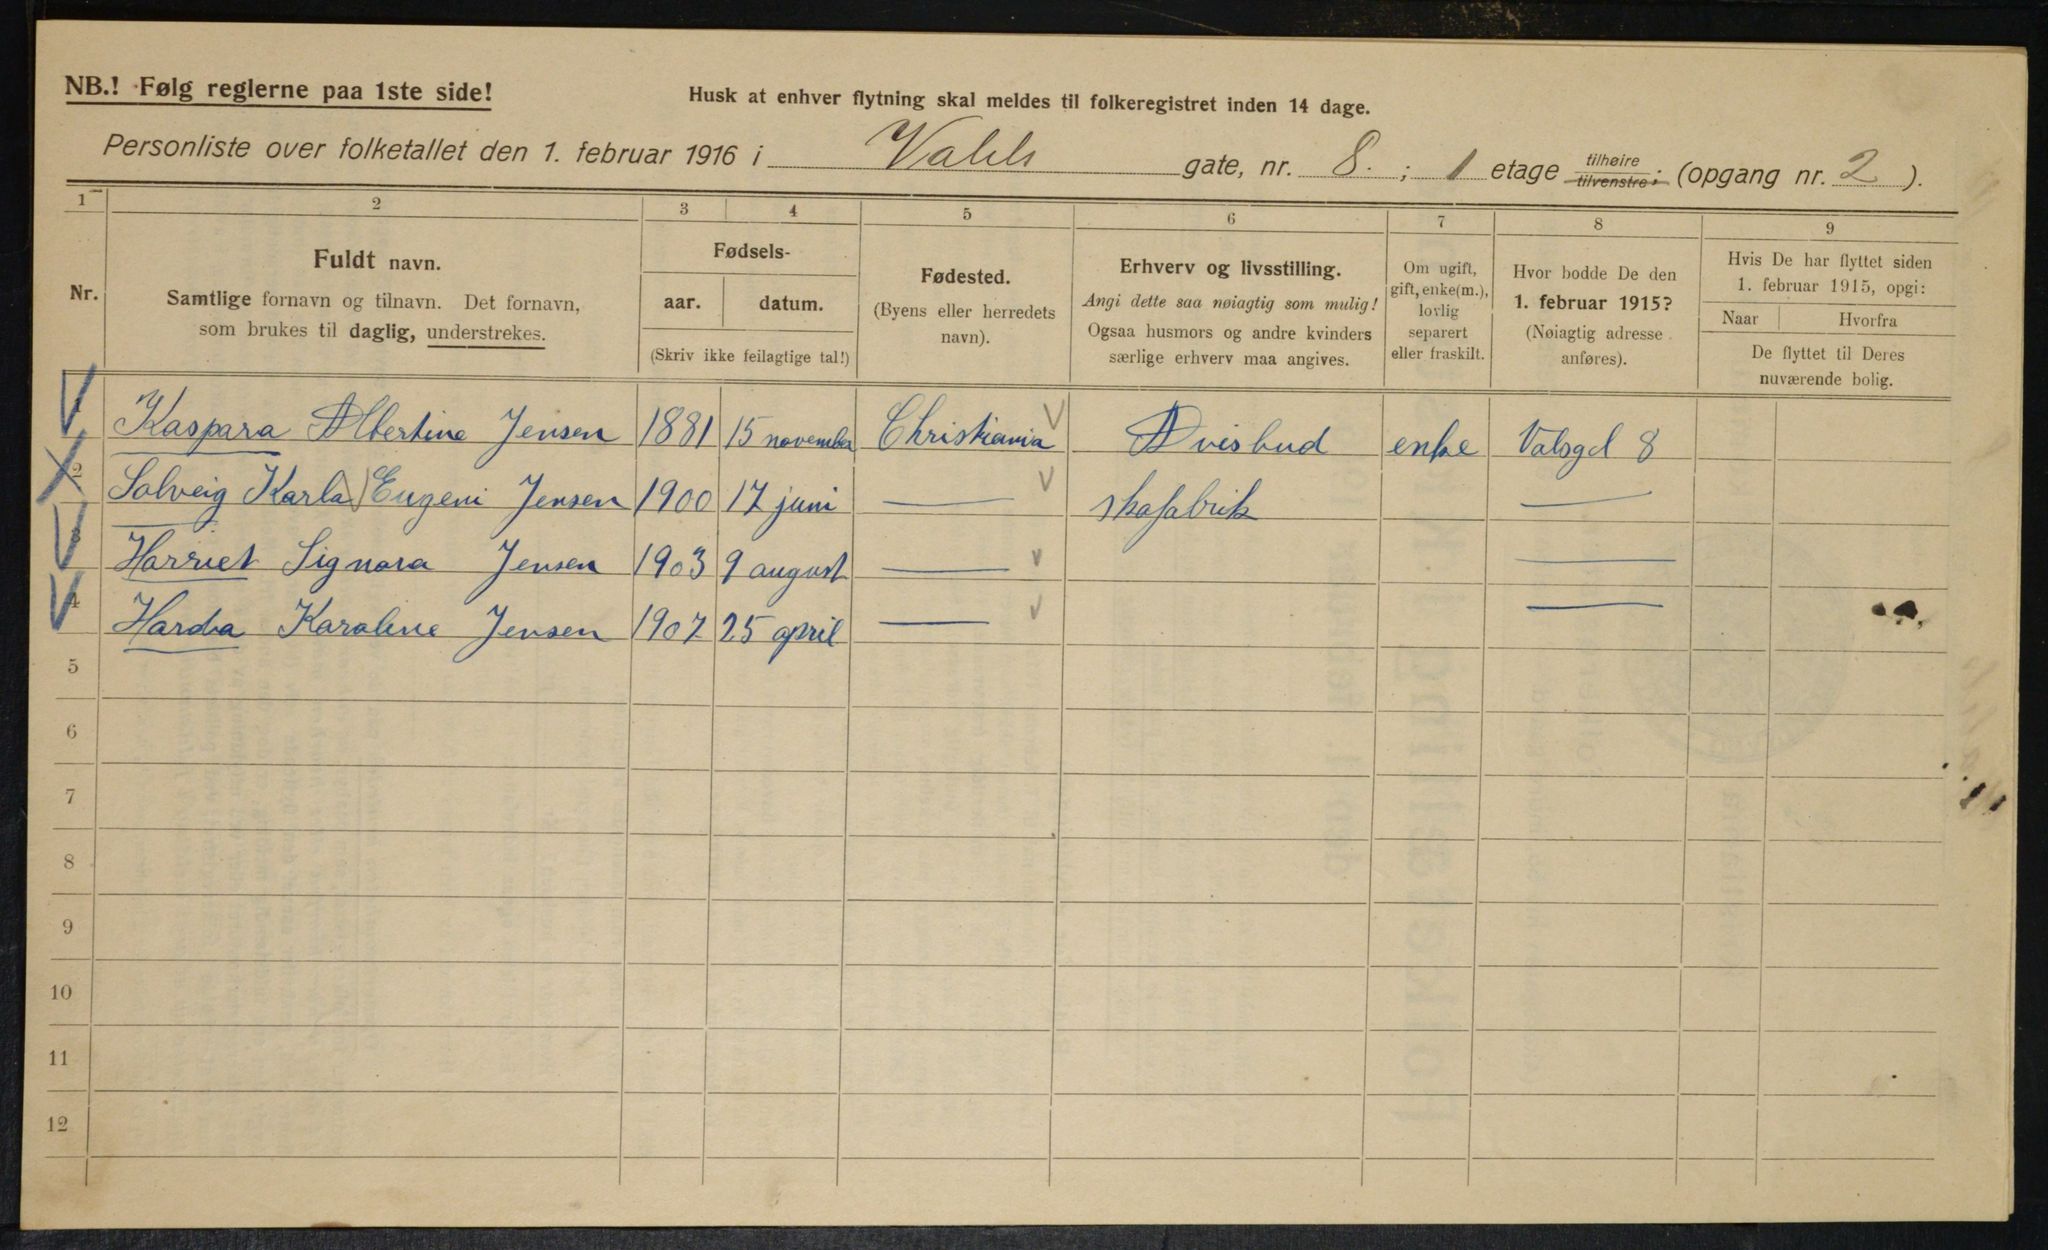 NB.! Følg reglerne paa 1ste side!
Husk at enhver flytning skal meldes til folkeregistret inden 14 dage.
Personliste over folketallet den 1. februar 1916 i Vahls gate, nr. 8. ; 1 etage tilhøire tilvenstre; (opgang nr. 2 ).
1 2 3 4 5 6 7 8 9
Nr.
Fuldt navn.
Samtlige fornavn og tilnavn. Det fornavn,
som brukes til daglig, understrekes.
Fødsels-
aar. datum.
(Skriv ikke feilagtige tal!)
Fødested.
(Byens eller herredets
navn).
Erhverv og livsstilling.
Angi dette saa nøiagtig som mulig!
Ogsaa husmors og andre kvinders
særlige erhverv maa angives.
Om ugift,
gift, enke(m.),
lovlig
separert
eller fraskilt.
Hvor bodde De den
1. februar 1915?
(Nøiagtig adresse
anføres).
Hvis De har flyttet siden
1. februar 1915, opgi:
Naar Hvorfra
De flyttet til Deres
nuværende bolig.
1 Kaspara Albertine Jensen 1881 15 november Christiania Avisbud enke Valsgd 8
2 Solveig Karla Eugeni Jensen 1900 17 juni — skofabrik —
3 Harriet Signora Jensen 1903 9 august — —
4 Harda Karoline Jensen 1907 25 april — —
5
6
7
8
9
10
11
12